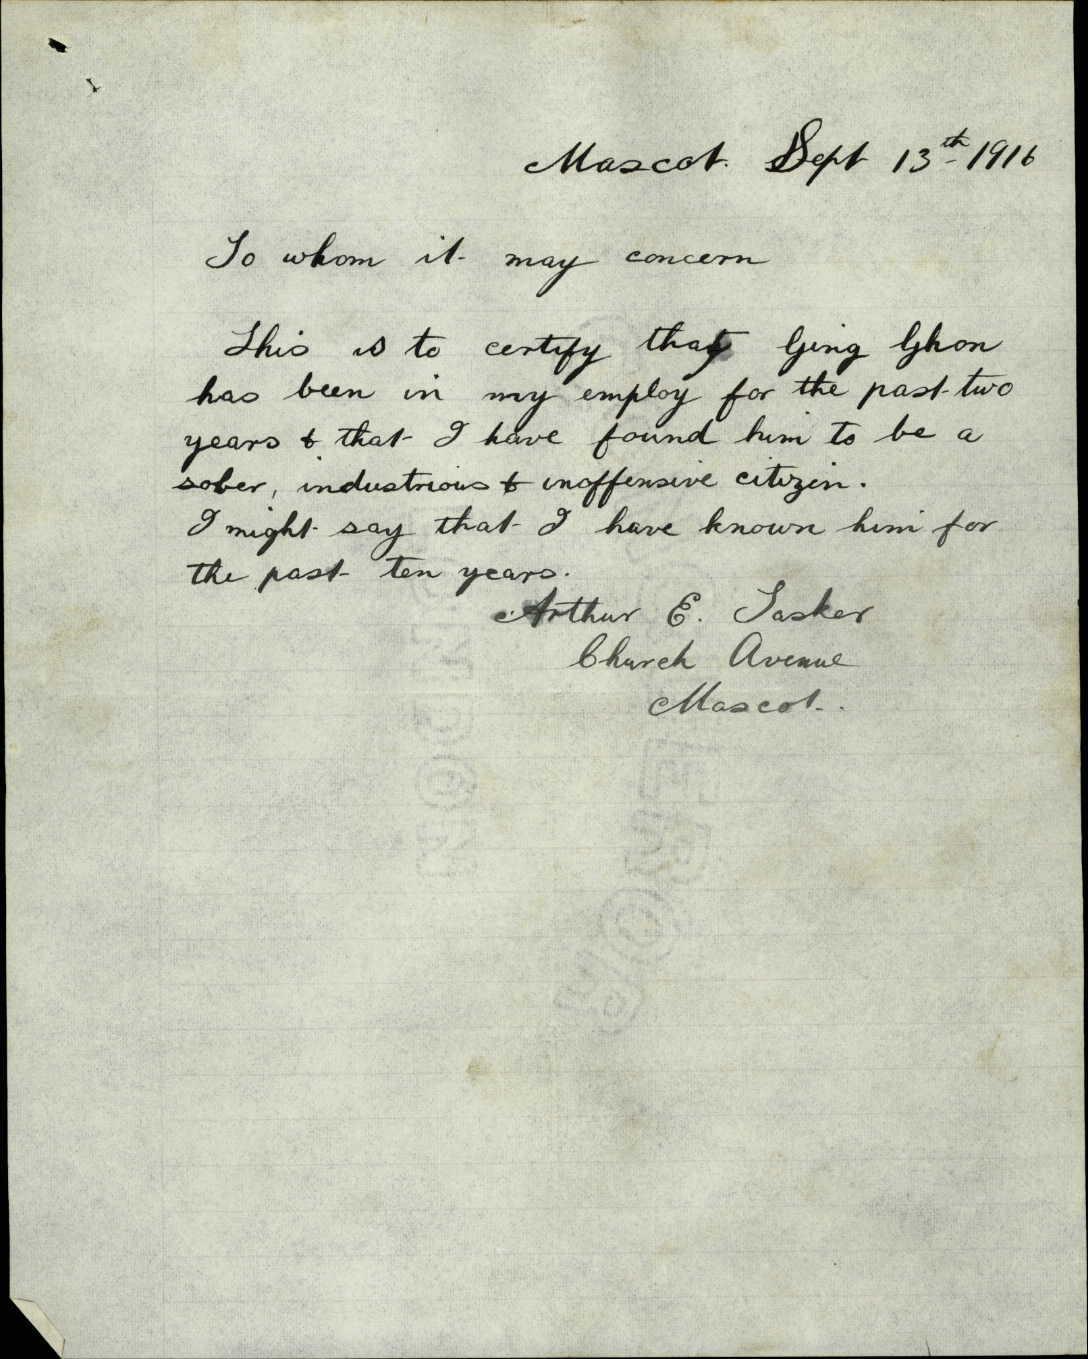 Mascot. Sept 13th 1916
To whom it may concern
This is to certify that Ging Ghon
has been in my employ for the past two
years & that I have found him to be a
sober, industrious & inoffensive citizen.
I might say that I have known him for
the past ten years.
Arthur E. Tasker
Church Avenue
Mascot.